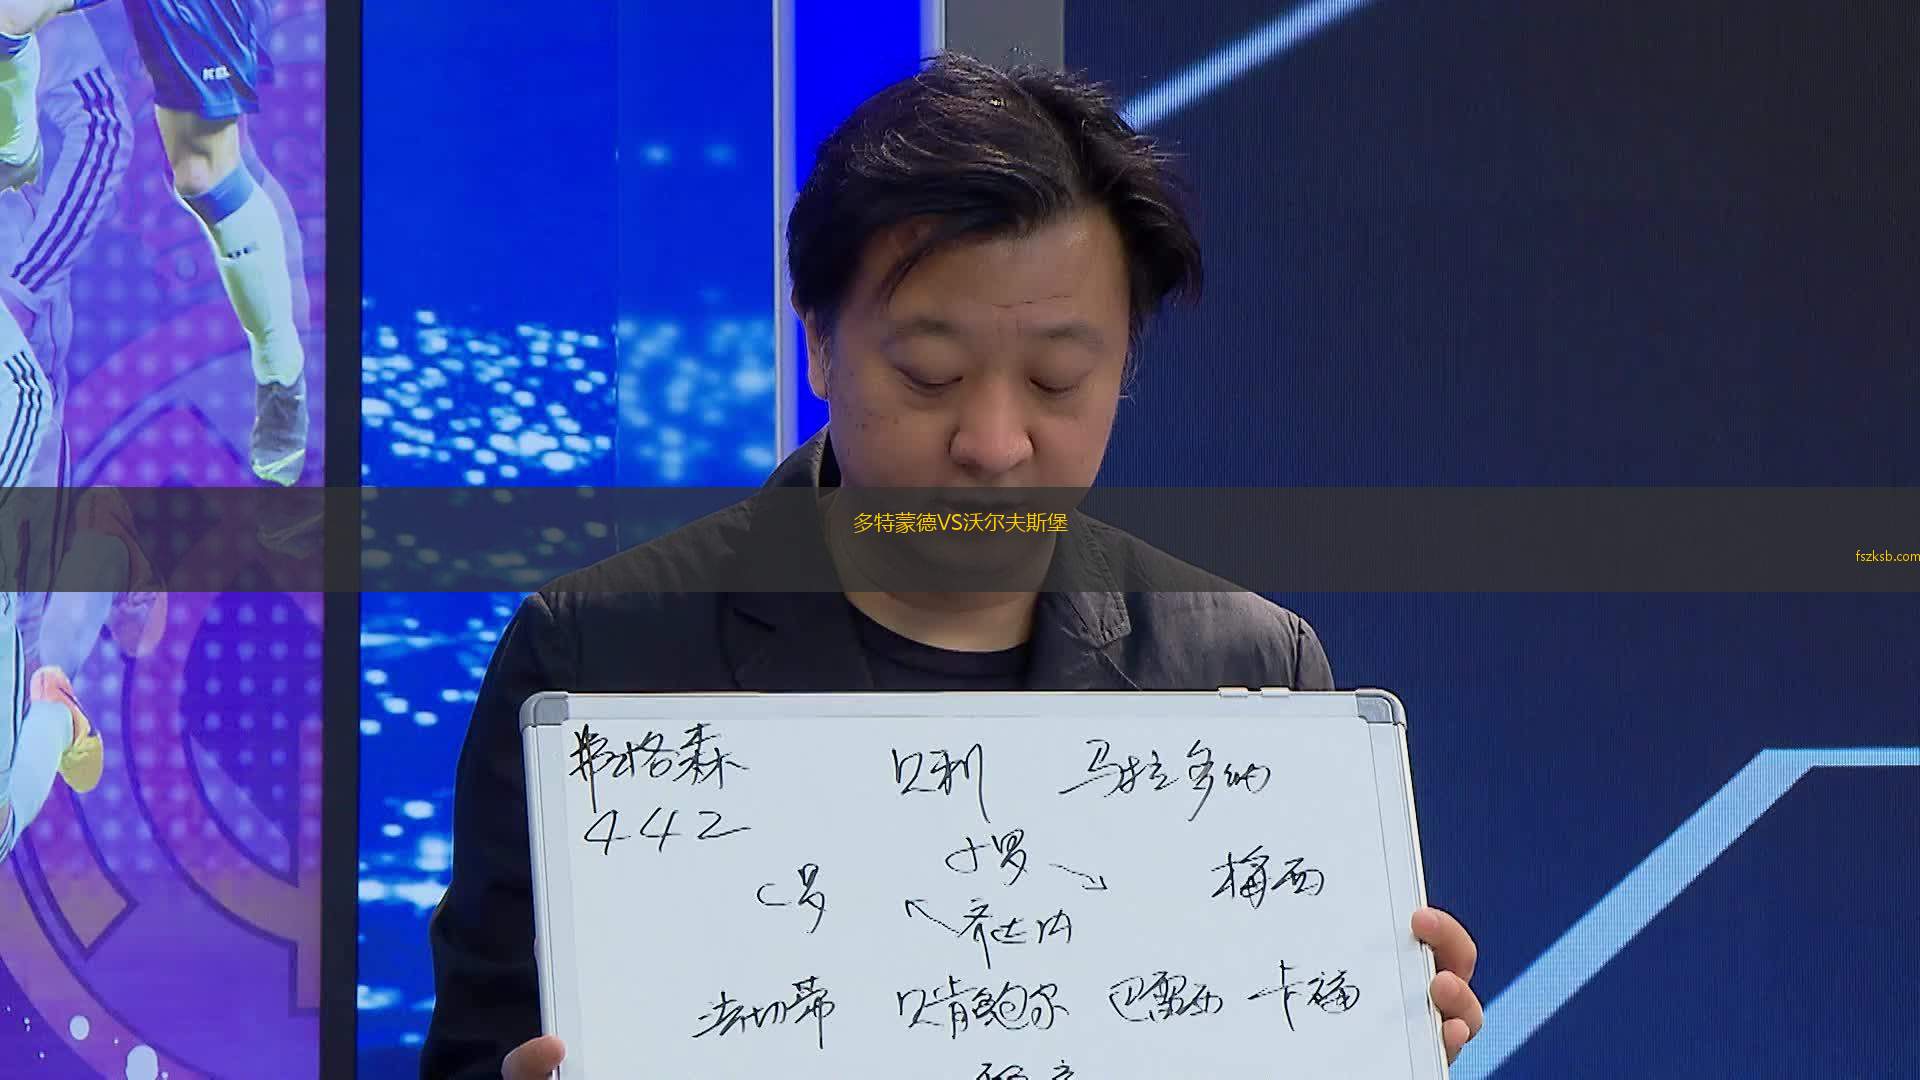 多特蒙德VS沃尔夫斯堡
fszksb.com
弗格森 贝利 马拉多纳
442
小罗
C罗 梅西
齐达内
法切蒂 贝肯鲍尔 巴雷西 卡福